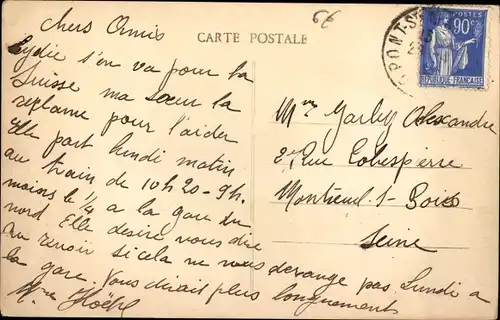 chers Amis
CARTE POSTALE
Lydie s'en va pour la
Suisse ma sœur la
reclame pour l'aider
Elle part lundi matin
au train de 10h20 - 9h.
moins le 1/4 a la gare du
nord Elle desire vous dire
au revoir si cela ne vous derange pas Lundi a
la gare. Vous dirait plus longuement
Mme
POSTES
90c
REPUBLIQUE FRANÇAISE
PONT-S
Garby Alexandre
2 Rue Robespierre
Montreuil s- Bois
Seine